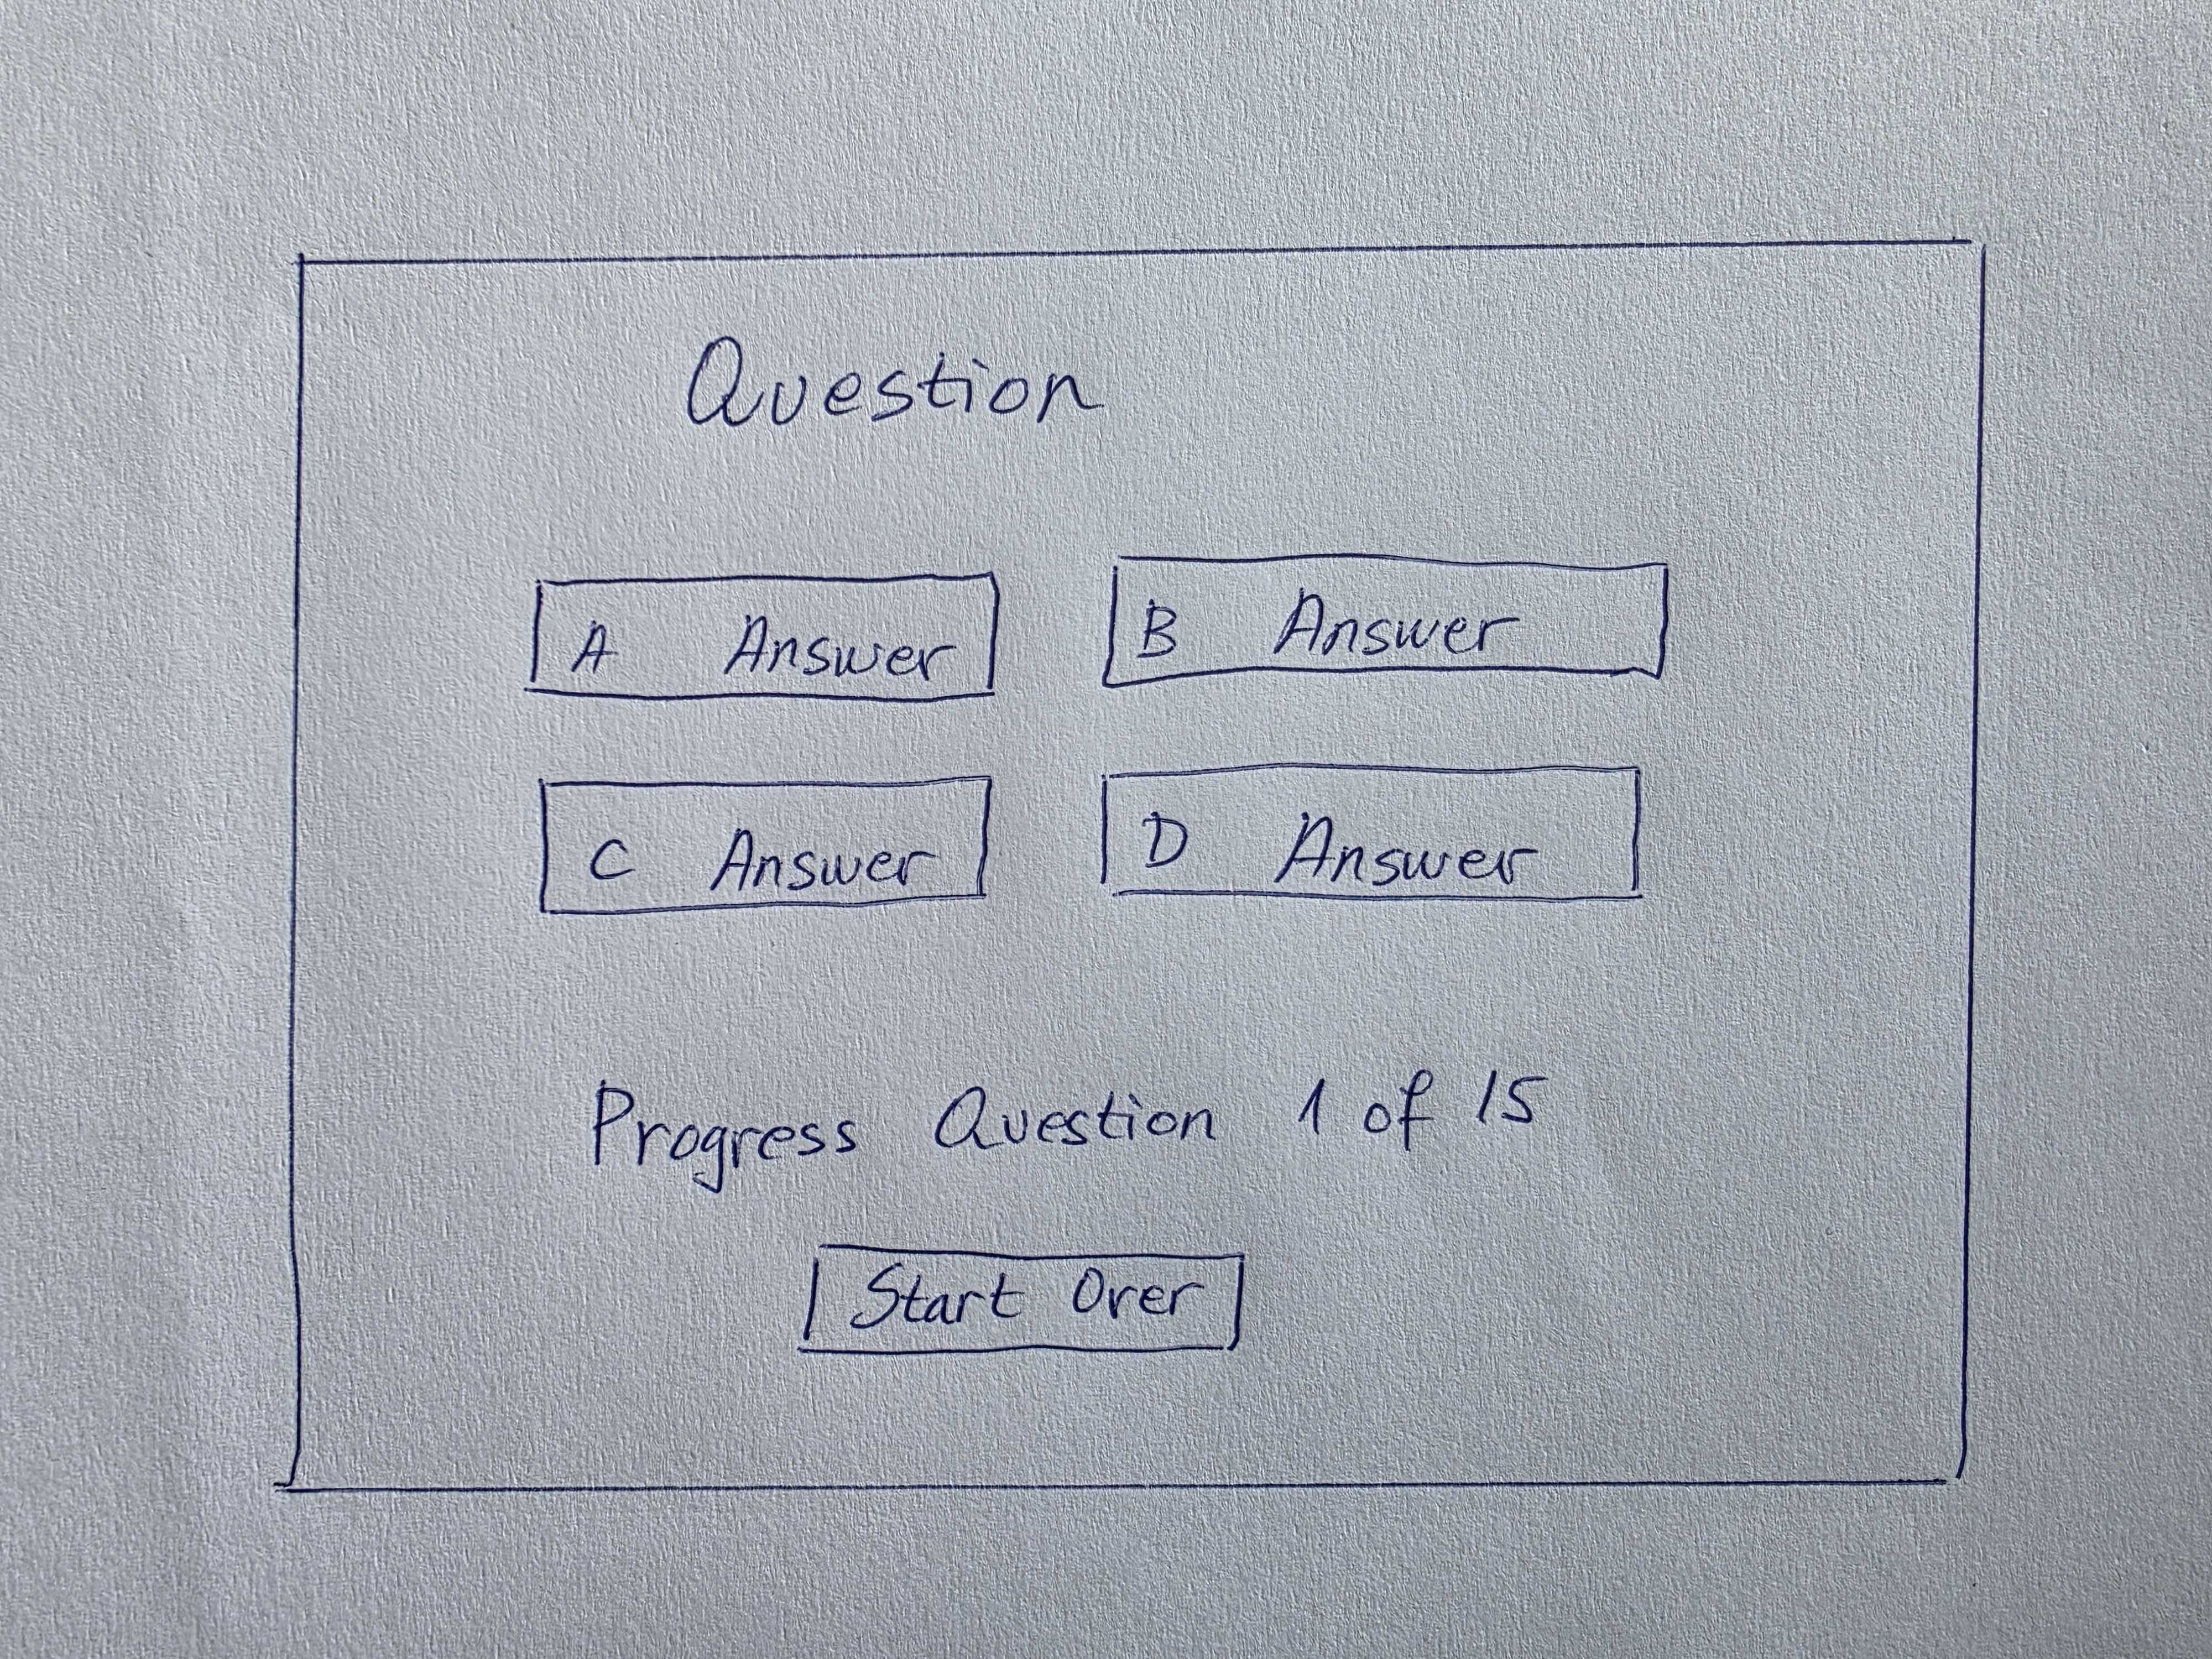 Question
A Answer
B Answer
C Answer
D Answer
Progress Question 1 of 15
Start Over